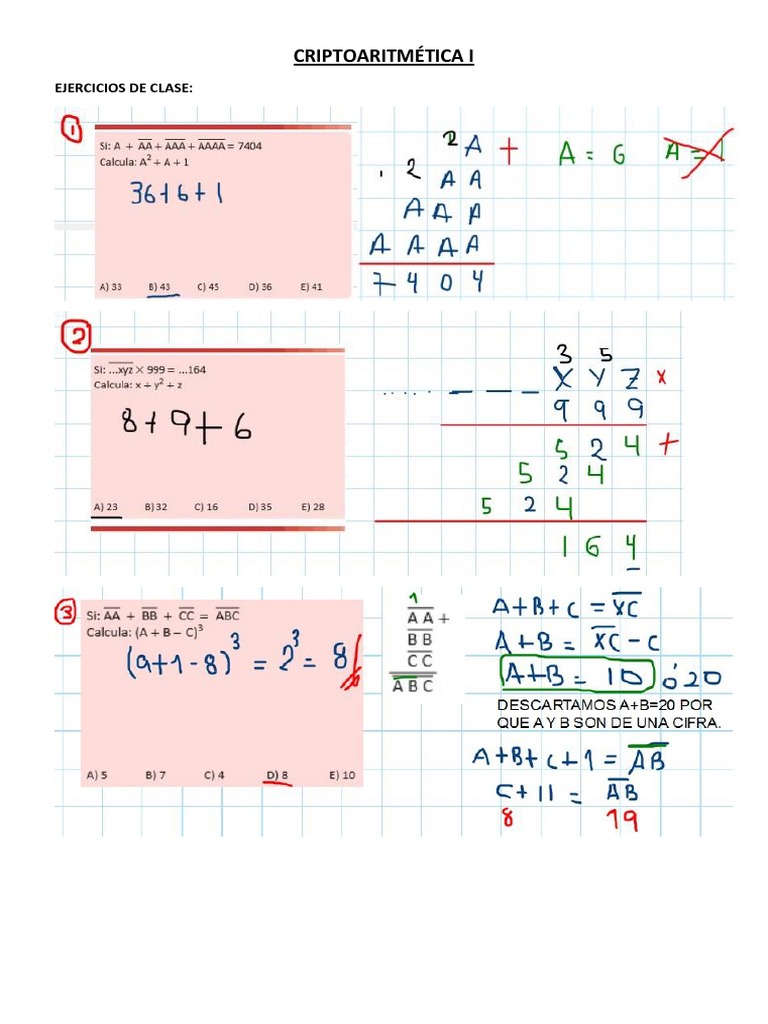 CRIPTOARITMÉTICA I
EJERCICIOS DE CLASE:
1
Si: A + AA + AAA + AAAA = 7404
Calcula: A² + A + 1
36+6+1
A) 33 B) 43 C) 45 D) 36 E) 41
2 A +
. 2 A A
A A A
A A A A
7 4 0 4
A = 6 A = 1
2
Si: ...xyz × 999 = ...164
Calcula: x + y² + z
8+9+6
A) 23 B) 32 C) 16 D) 35 E) 28
3 5
..... _ _ _ X Y Z x
9 9 9
5 2 4 +
5 2 4
5 2 4
1 6 4
3
Si: AA + BB + CC = ABC
Calcula: (A + B – C)³
(9+1-8)³ = 2³ = 8
A) 5 B) 7 C) 4 D) 8 E) 10
1
A A +
B B
C C
A B C
A+B+C = XC
A+B = XC - C
A+B = 10 ó 20
DESCARTAMOS A+B=20 POR
QUE A Y B SON DE UNA CIFRA.
A+B+C+1 = AB
C+11 = AB
8 19